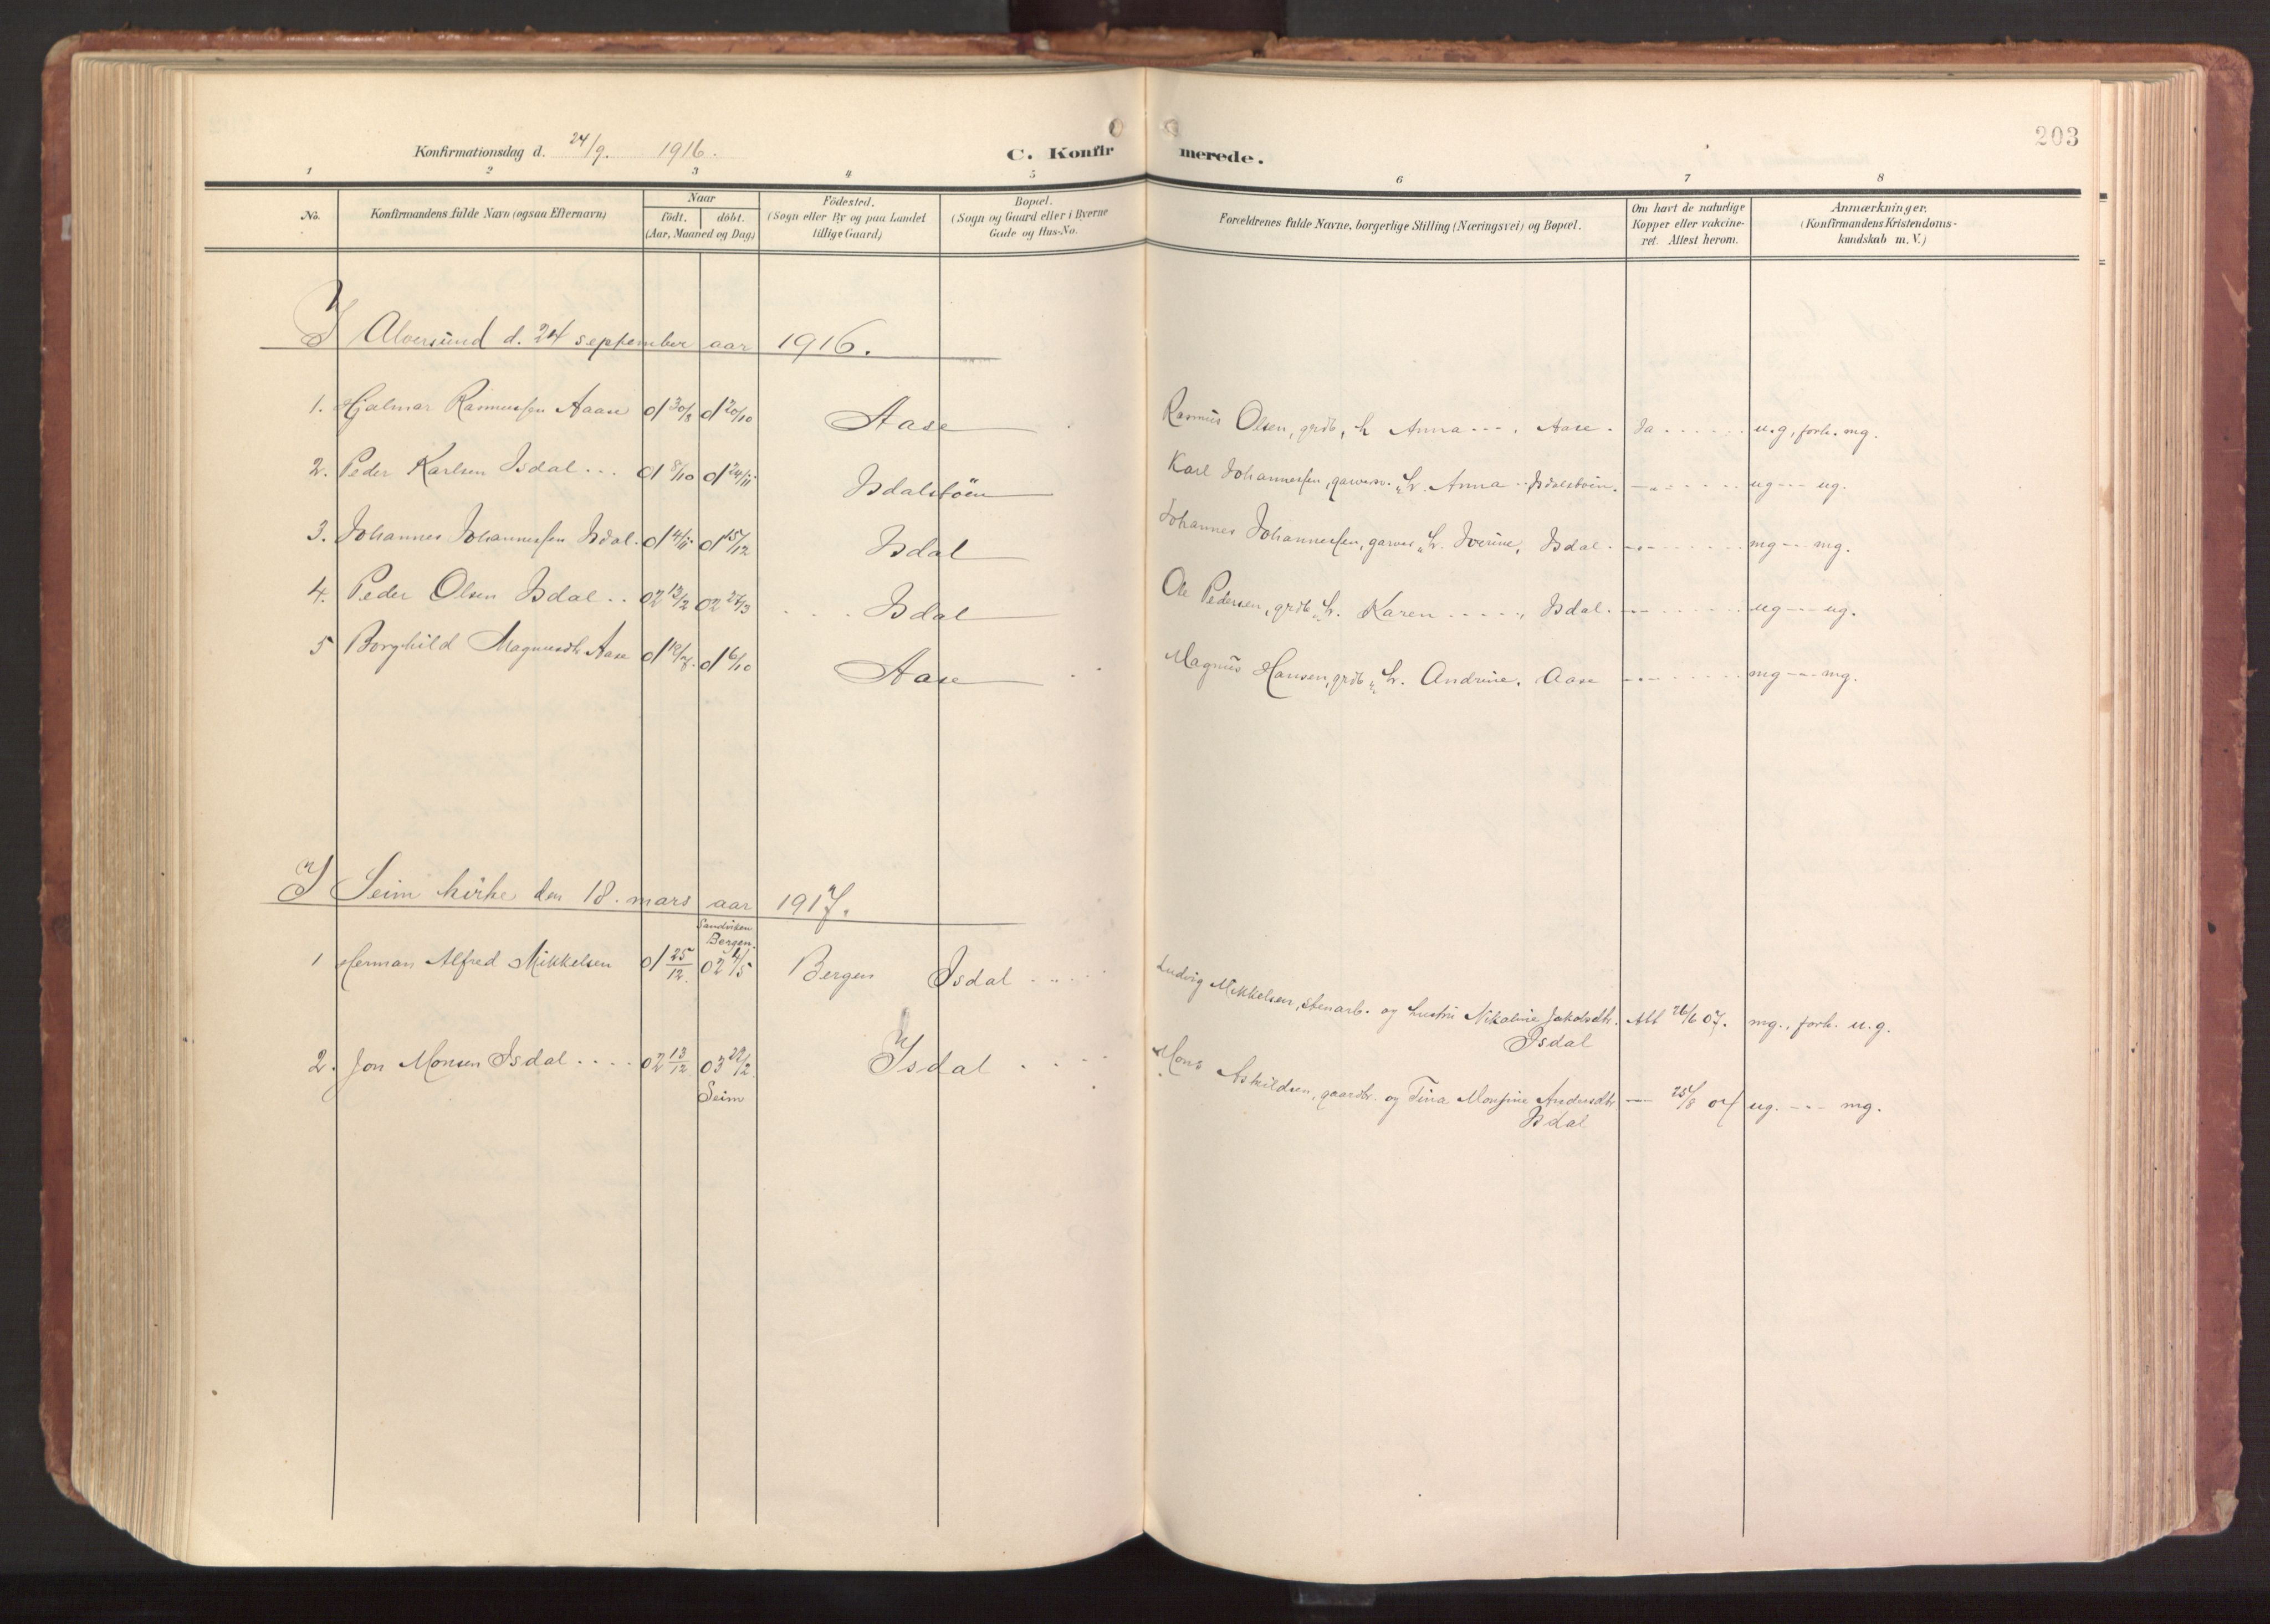 203
Konfirmationsdag d. 24/9. 1916.
C. Konfirmerede.
1 2 3 4 5 6 7 8
No. Konfirmandens fulde Navn (ogsaa Efternavn) Naar födt. döbt. (Aar, Maaned og Dag) Födested. (Sogn eller By og paa Landet tillige Gaard) Bopæl. (Sogn og Gaard eller i Byerne Gade og Hus-No. Forældrenes fulde Navne, borgerlige Stilling (Næringsvei) og Bopæl. Om havt de naturlige Kopper eller vakcineret. Attest herom. Anmærkninger. (Konfirmandens Kristendomskundskab m. V.)
I Alversund d. 24 september aar 1916.
1. Hjalmar Rasmussen Aase 01 30/8 01 20/10 Aase Rasmus Olsen, grdb, h. Anna ---, Aase. Ja ...... u.g, forh. mg.
2. Peder Karlsen Isdal ... 01 8/10 01 24/11 Isdalstöen Karl Johannessen, garver. h. Anna -- Isdalstöen. -"- ..... ug --- ug.
3. Johannes Johannessen Isdal. 01 4/11 01 15/12 Isdal Johannes Johannessen, garver h. Iverine, Isdal. -"- ..... mg --- mg.
4. Peder Olsen Isdal .. 02 13/2 02 27/3 .... Isdal Ole Pedersen, grdb h. Karen ....., Isdal. -"- ..... ug --- ug.
5 Borghild Magnusdtr Aase 01 19/7. 01 6/10 Aase Magnus Hansen, grdb h. Andrine. Aase -"- ..... mg --- mg.
I Seim kirke den 18. mars aar 1917.
Sandviken
Bergen.
1 Herman Alfred Mikkelsen 01 25/12. 02 4/5 Bergen Isdal ..... Ludvig Mikkelsen, stenarb. og hustru Nikoline Jakobsdtr. Att 26/6 07. mg., forh. u.g.
Isdal
2. Jon Monsen Isdal .... 02 13/12 03 22/2. Isdal .... Mons Askildsen, gaardbr. og Tina Monsine Andersdtr --- 25/8 04 ug. --- mg.
Seim
Isdal